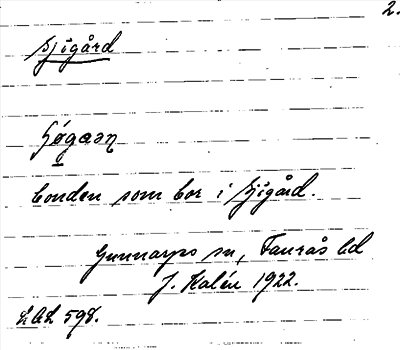 2.
Sjigård
Gøgasn
bonden som bor i Sjigård.
Gunnarps sn, Faurås hd
J. Kalén 1922.
LAL 598.